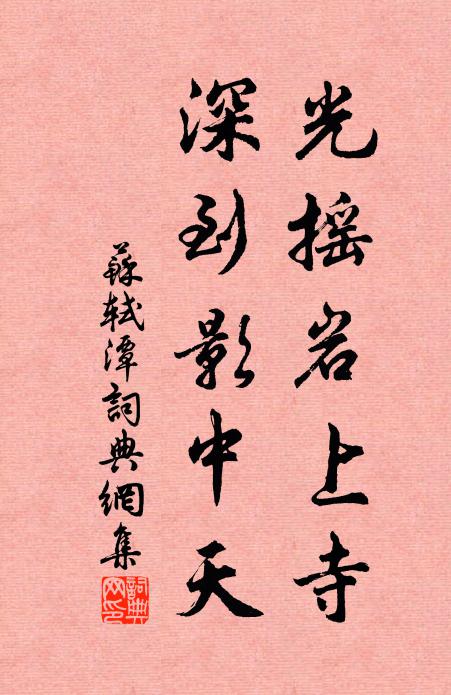 光摇岩上寺
深到影中天
蘇軾潭詞典網集
詞典网印